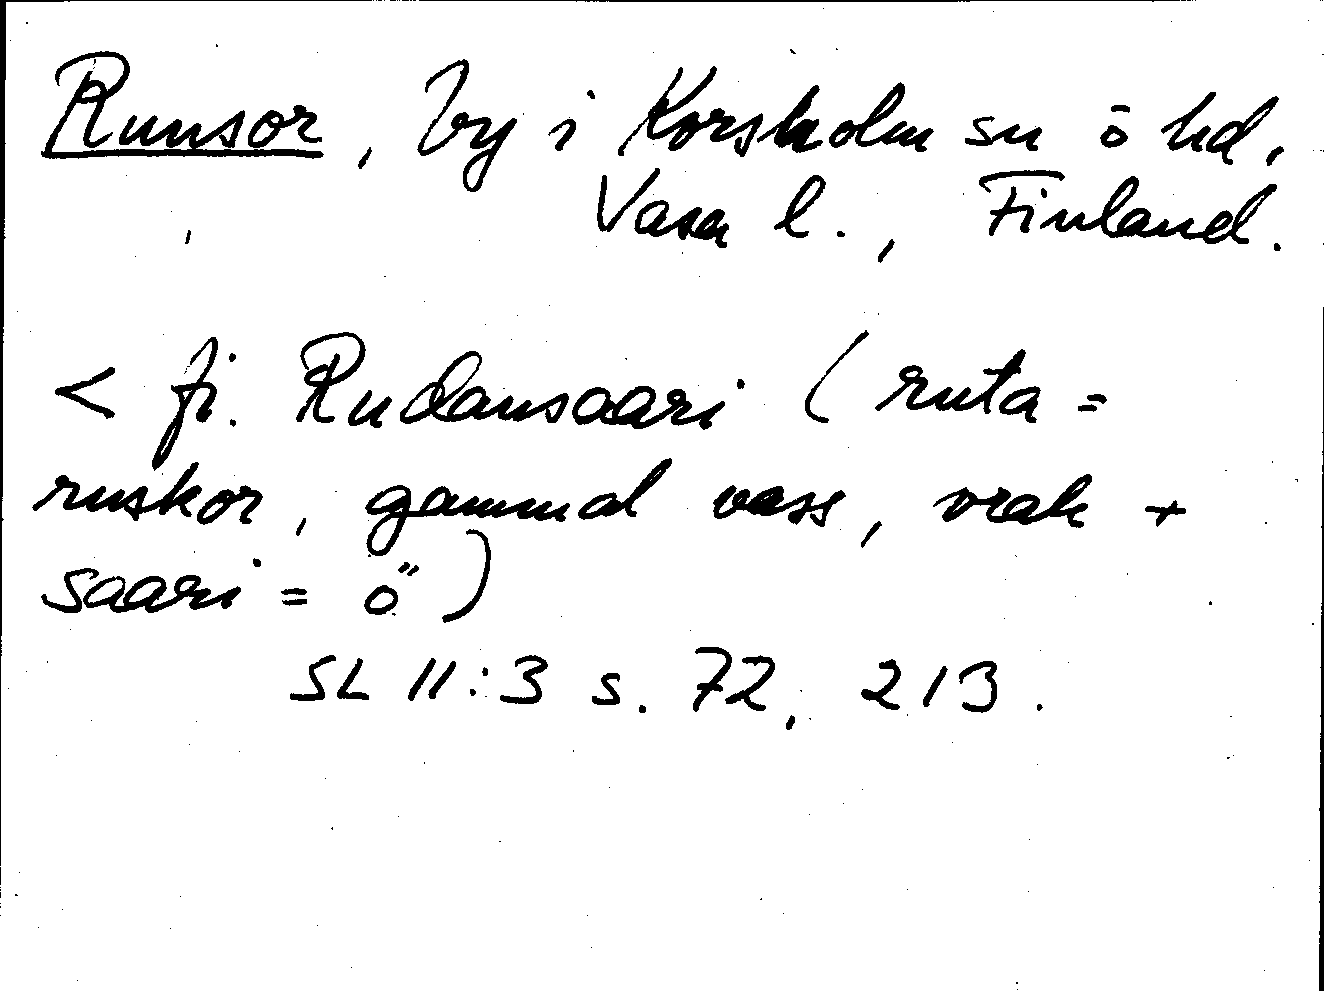 Runsor, by i Korsholm sn ö hd,
Vasa l., Finland.
< fi. Rudansaari (ruta =
ruskor, gammal vass, vrak +
saari = ö")
SL 11:3 s. 72, 213.